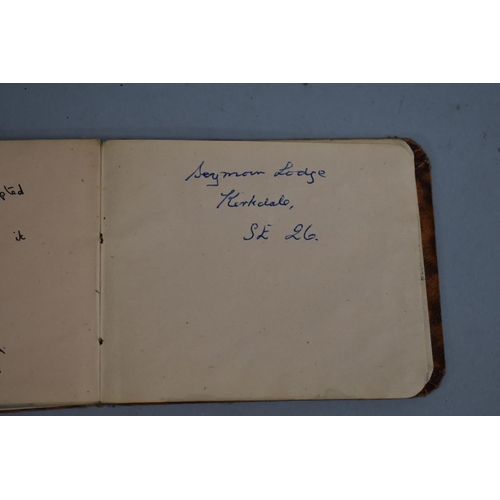 pted
it
Seymour Lodge
Kirkdale,
SE 26.